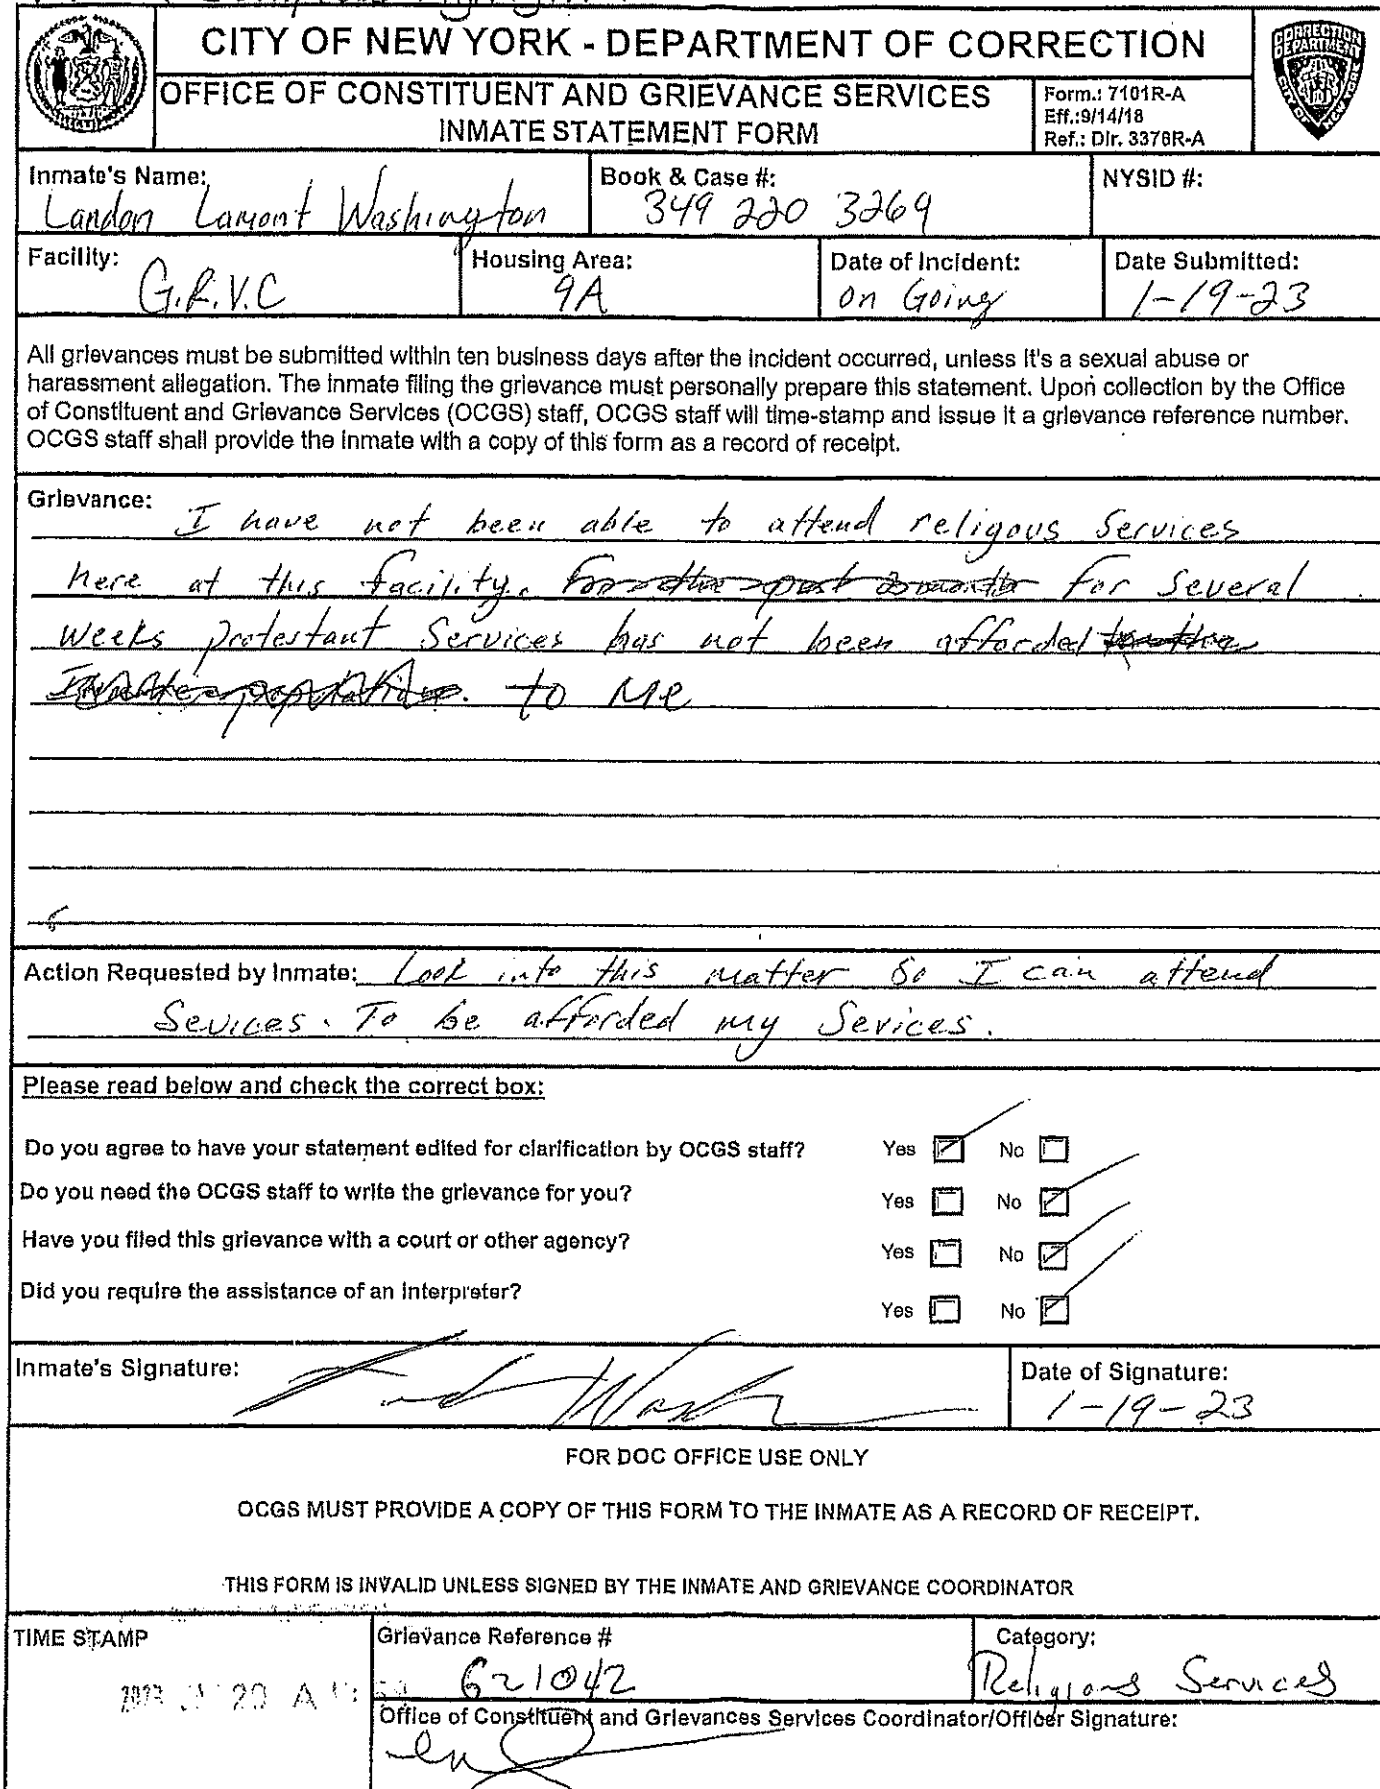 CITY OF NEW YORK - DEPARTMENT OF CORRECTION
OFFICE OF CONSTITUENT AND GRIEVANCE SERVICES
INMATE STATEMENT FORM
Form.: 7101R-A
Eff.:9/14/18
Ref.: Dir. 3376R-A
CORRECTION
DEPARTMENT
CITY OF NEW YORK
Inmate's Name:
Landon Lamont Washington
Book & Case #:
349 220 3269
NYSID #:
Facility:
G.R.V.C
Housing Area:
9A
Date of Incident:
on Going
Date Submitted:
1-19-23
All grievances must be submitted within ten business days after the incident occurred, unless it's a sexual abuse or
harassment allegation. The inmate filing the grievance must personally prepare this statement. Upon collection by the Office
of Constituent and Grievance Services (OCGS) staff, OCGS staff will time-stamp and issue it a grievance reference number.
OCGS staff shall provide the inmate with a copy of this form as a record of receipt.
Grievance: I have not been able to attend religous Services
here at this facility. For Several
weeks protestant Services has not been afforded
to me
Action Requested by Inmate: Look into this matter So I can attend
Sevices. To be afforded my Sevices.
Please read below and check the correct box:
Do you agree to have your statement edited for clarification by OCGS staff? Yes No
Do you need the OCGS staff to write the grievance for you? Yes No
Have you filed this grievance with a court or other agency? Yes No
Did you require the assistance of an interpreter? Yes No
Inmate's Signature:
Date of Signature:
1-19-23
FOR DOC OFFICE USE ONLY
OCGS MUST PROVIDE A COPY OF THIS FORM TO THE INMATE AS A RECORD OF RECEIPT.
THIS FORM IS INVALID UNLESS SIGNED BY THE INMATE AND GRIEVANCE COORDINATOR
TIME STAMP
2023 20 A
Grievance Reference #
621042
Category:
Religions Services
Office of Constituent and Grievances Services Coordinator/Officer Signature: